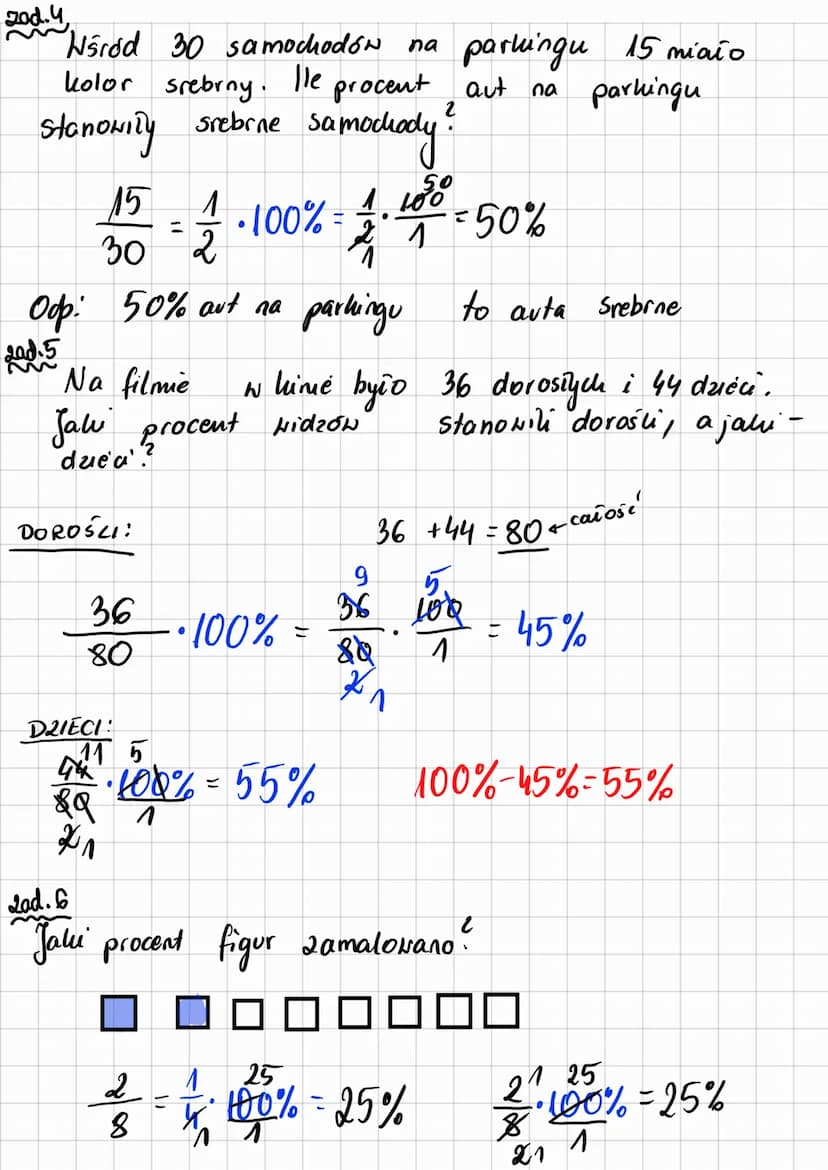 zad.4
Wśród 30 samochodów na parkingu 15 miało
kolor srebrny. Ile procent aut na parkingu
stanowiły srebrne samochody?
15/30 = 1/2 · 100% = 1/2 1 · 100 50/1 = 50%
Odp: 50% aut na parkingu to auta srebrne
zad.5
Na filmie w kinie było 36 dorosłych i 44 dzieci.
Jaki procent widzów stanowili dorośli, a jaki -
dzieci?
DOROŚLI: 36 + 44 = 80 ← całość
36/80 · 100% = 36 9/80 2 1 · 100 5/1 = 45%
DZIECI:
44 11/80 2 1 · 100% 5/1 = 55% 100% - 45% = 55%
zad.6
Jaki procent figur zamalowano?
2/8 = 1/4 1 · 100% 25/1 = 25% 2 1/8 2 1 · 100% 25/1 = 25%